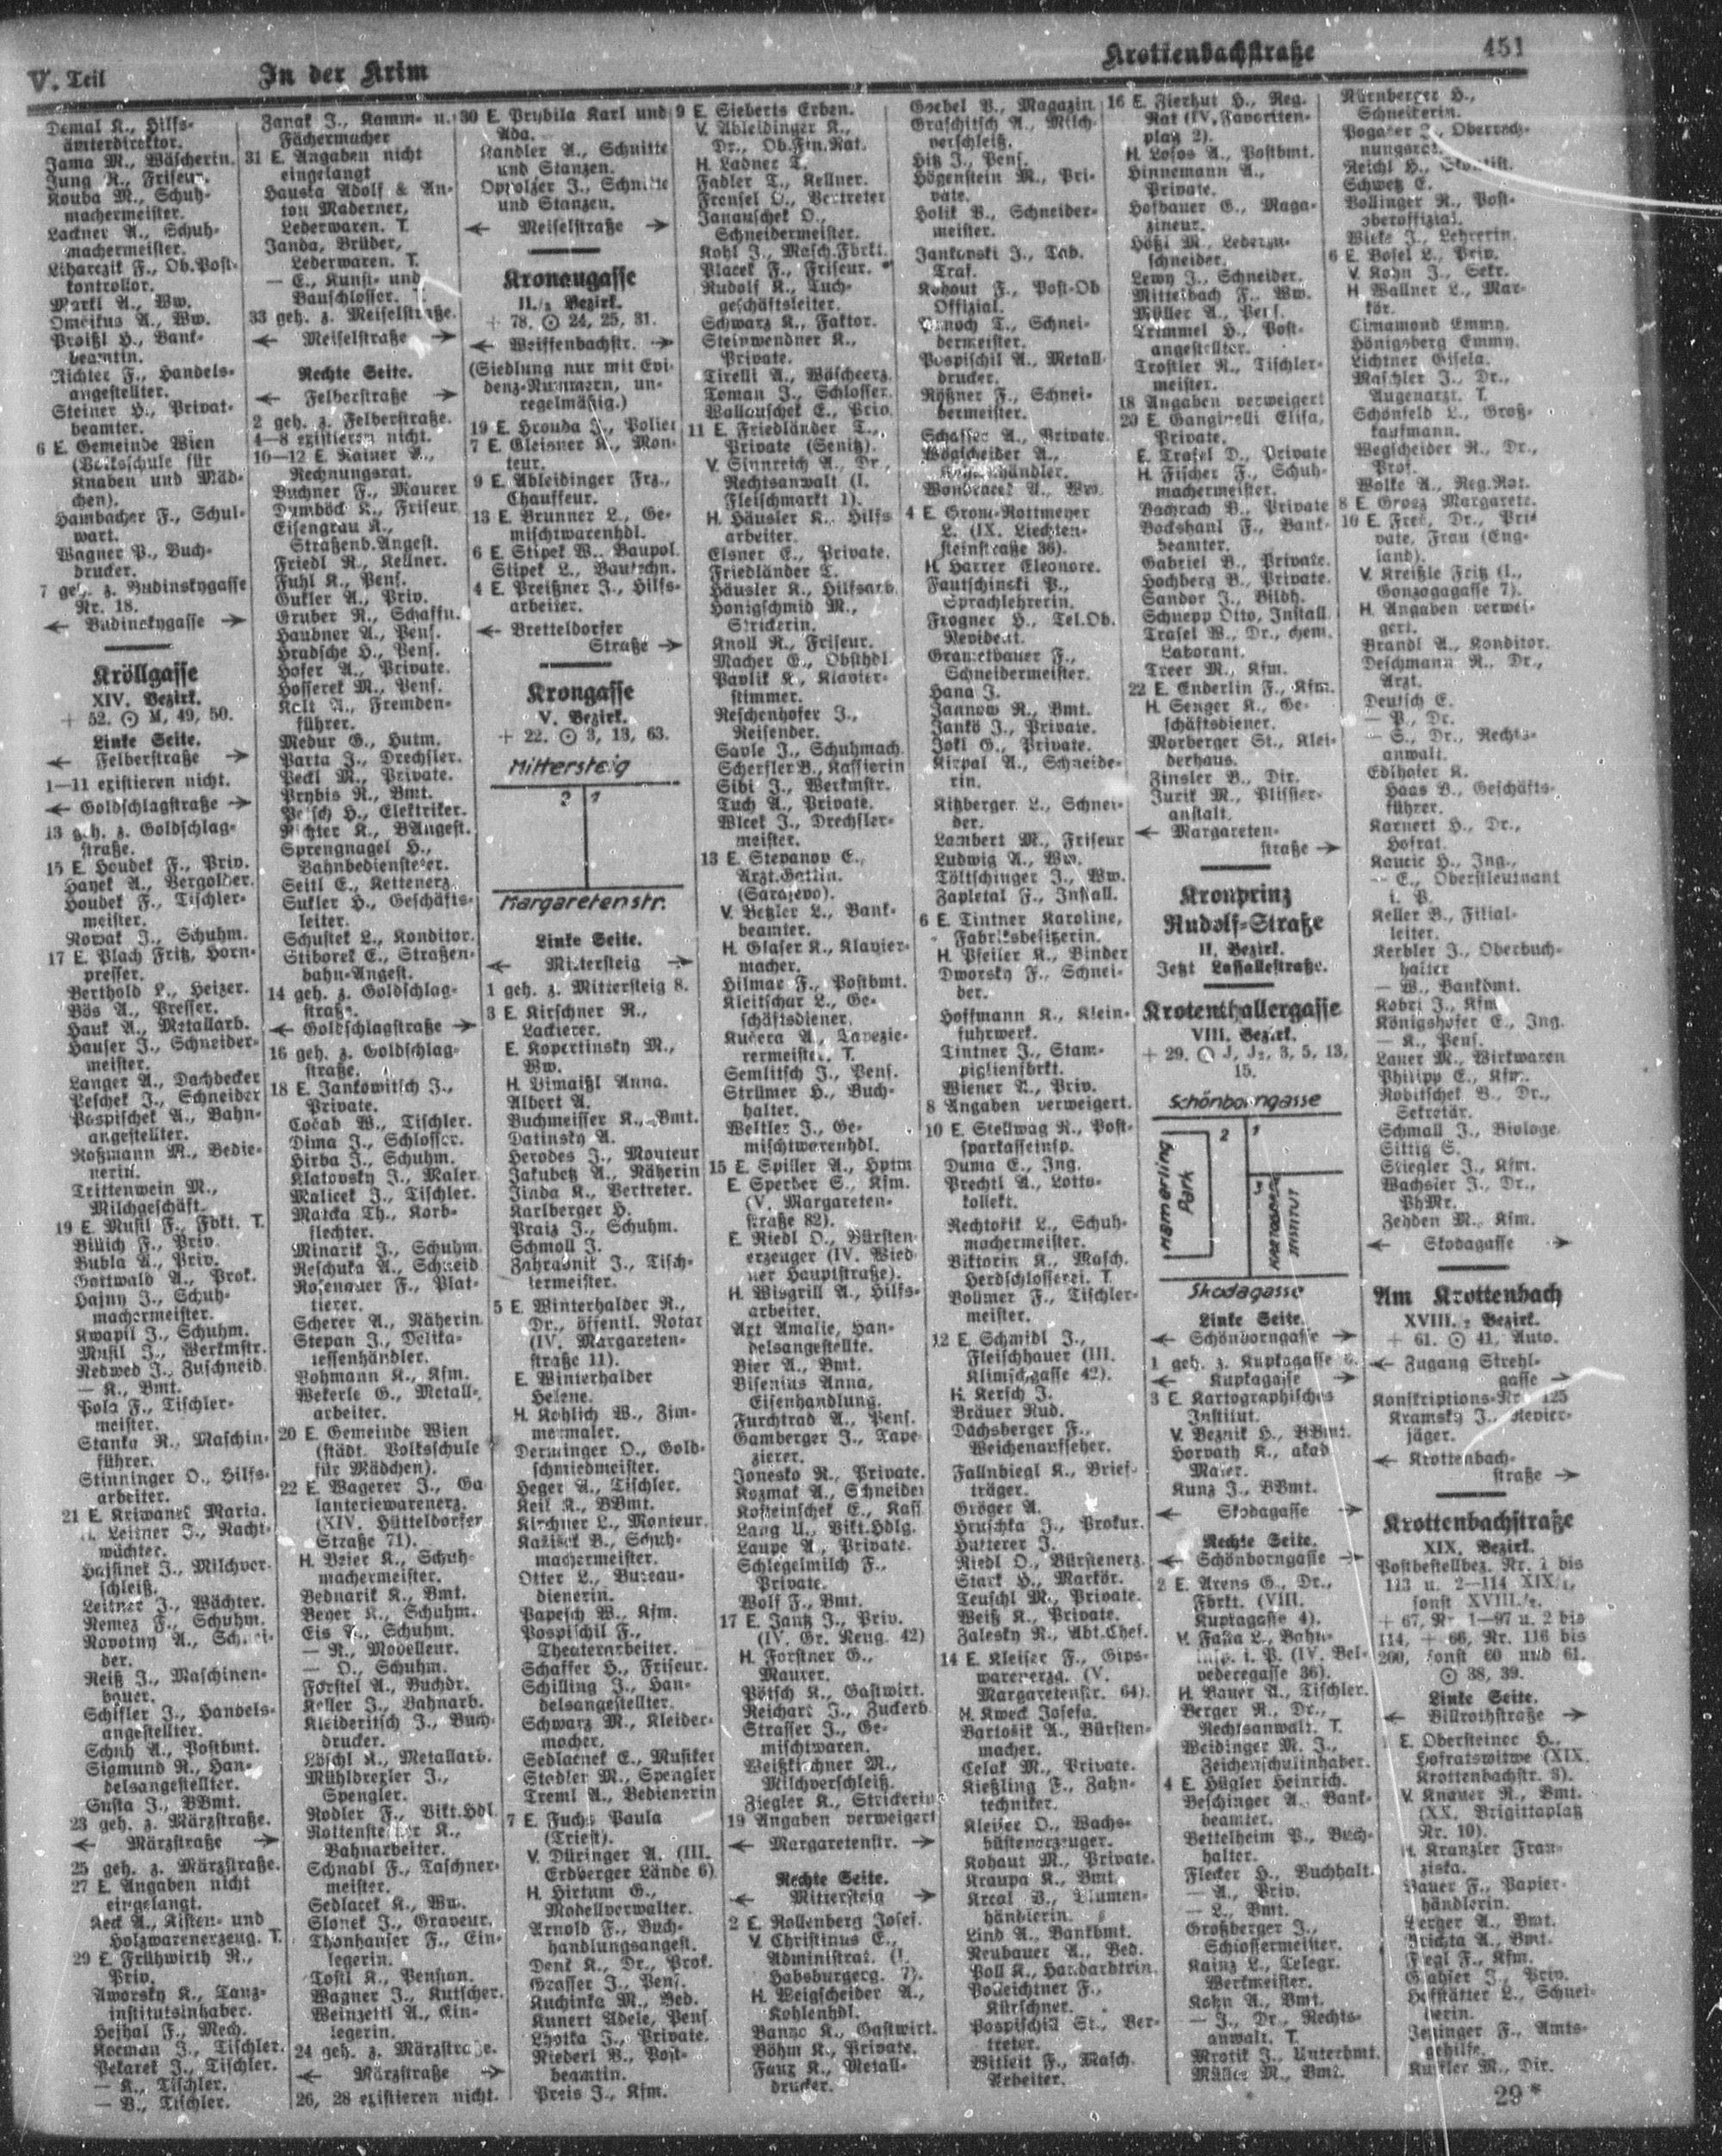 V. Teil
In der Krim
Krottenbachstraße
451
Demal K., Hilfs-
ämterdirektor.
Jama M., Wäscherin.
Jung R., Friseur.
Kouba M., Schuh-
machermeister.
Lackner A., Schuh-
machermeister.
Liharczik F., Ob.Post-
kontrollor.
Markl A., Ww.
Omeikus A., Ww.
Proißl H., Bank-
beamtin.
Richter F., Handels-
angestellter.
Steiner H., Privat-
beamter.
6 E. Gemeinde Wien
(Volksschule für
Knaben und Mäd-
chen).
Hambacher F., Schul-
wart.
Wagner P., Buch-
drucker.
7 geh. z. Budinskygasse
Nr. 18.
← Budinskygasse →
Kröllgasse
XIV. Bezirk.
+ 52. ⊙ M, 49, 50.
Linke Seite.
← Felberstraße →
1—11 existieren nicht.
← Goldschlagstraße →
13 geh. z. Goldschlag-
straße.
15 E. Houdek F., Priv.
Hayek A., Vergolder.
Houdek F., Tischler-
meister.
Nowak J., Schuhm.
17 E. Plach Fritz, Horn-
presser.
Berthold L., Heizer.
Bös A., Presser.
Hauk A., Metallarb.
Hauser J., Schneider-
meister.
Langer A., Dachdecker
Peschek J., Schneider
Pospischek A., Bahn-
angestellter.
Roßmann M., Bedie-
nerin.
Trittenwein M.,
Milchgeschäft.
19 E. Musil F., Fbkt. T.
Billich F., Priv.
Bubla A., Priv.
Gottwald A., Prok.
Hajny J., Schuh-
machermeister.
Kwapil J., Schuhm.
Musil J., Werkmstr.
Nedwed J., Zuschneid.
— K., Bmt.
Pola F., Tischler-
meister.
Stanka R., Maschin-
führer.
Stinninger O., Hilfs-
arbeiter.
21 E. Kriwanek Maria.
H. Leitner J., Nacht-
wächter.
J., Milchver-
schleiß.
Leitner J., Wächter.
Nemez F., Schuhm.
Novotny A., Schnei-
der.
Reiß J., Maschinen-
bauer.
Schifler J., Handels-
angestellter.
Schuh A., Postbmt.
Sigmund R., Han-
delsangestellter.
Susta J., BBmt.
23 geh. z. Märzstraße.
← Märzstraße →
25 geh. z. Märzstraße.
27 E. Angaben nicht
eingelangt.
Keck A., Kisten- und
Holzwarenerzeug. T.
29 E. Frühwirth R.,
Priv.
Aworsky K., Tanz-
institutsinhaber.
Hejhal F., Mech.
Korman J., Tischler.
Pekarek J., Tischler.
— K., Tischler.
— B., Tischler.
Zanak J., Kamm- u.
Fächermacher
31 E. Angaben nicht
eingelangt
Hauska Adolf & An-
ton Maderner,
Lederwaren. T.
Janda, Brüder,
Lederwaren. T.
— E., Kunst- und
Bauschlosser.
33 geh. z. Meiselstraße.
← Meiselstraße →
Rechte Seite.
← Felberstraße →
2 geh. z. Felberstraße.
4—8 existieren nicht.
10—12 E. Kainer
Rechnungsrat.
Buchner F., Maurer
Dumböck K., Friseur
Eisengrau K.,
Straßenb.Angest.
Friedl R., Kellner.
Fuhl K., Pens.
Gukler A., Priv.
Gruber R., Schaffn.
Haubner A., Pens.
Hradsche H., Pens.
Hofer A., Private.
Hosserek M., Pens.
Kelt A., Fremden-
führer.
Medur G., Hutm.
Parta J., Drechsler.
Peckl M., Private.
Prybis R., Bmt.
H., Elektriker.
Richter K., BAngest.
Sprengnagel H.,
Bahnbediensteter.
Seitl E., Kettenerz.
Sukler H., Geschäfts-
leiter.
Schustek L., Konditor.
Stiborek E., Straßen-
bahn-Angest.
14 geh. z. Goldschlag-
straße.
← Goldschlagstraße →
16 geh. z. Goldschlag-
straße.
18 E. Jankowitsch J.,
Private.
Cocab W., Tischler.
Dima J., Schlosser.
Hirba J., Schuhm.
Klatovsky J., Maler.
Malicek J., Tischler.
Matcka Th., Korb-
flechter.
Minarik J., Schuhm.
Reschuka A., Schneid
Rosenauer F., Plat-
tierer.
Scherer A., Näherin
Stepan J., Delika-
tessenhändler.
Vohmann K., Kfm.
Wekerle G., Metall-
arbeiter.
20 E. Gemeinde Wien
(städt. Volksschule
für Mädchen).
22 E. Wagerer J., Ga
lanteriewarenerz.
(XIV. Hütteldorfer
Straße 71).
H. Beier K., Schuh-
machermeister.
Bednarik K., Bmt.
Beyer K., Schuhm.
Eis Schuhm.
— R., Modelleur.
— O., Schuhm.
Förstel A., Buchdr.
Keller J., Bahnarb.
Kleideritsch J., Buch-
drucker.
Löschl K., Metallarb.
Mühldrexler J.,
Spengler.
Rodler F., Vikt.Hdl.
K.,
Bahnarbeiter.
Schnabl F., Taschner-
meister.
Sedlacek K., Ww.
Slonek J., Graveur.
Thonhauser F., Ein-
legerin.
Tostl K., Pension.
Wagner J., Kutscher.
Weinzettl A., Ein-
legerin.
24 geh. z. Märzstraße.
← Märzstraße →
26, 28 existieren nicht.
30 E. Prybila Karl und
Ada.
Kandler A., Schnitte
und Stanzen.
Oppolzer J., Schnitte
und Stanzen.
← Meiselstraße →
Kronaugasse
II./2 Bezirk.
+ 78. ⊙ 24, 25, 31.
← Weissenbachstr. →
(Siedlung nur mit Evi-
denz-Nummern, un-
regelmäßig.)
19 E. Hrouda J., Polier
7 E. Gleisner K., Mon-
teur.
9 E. Ableidinger Frz.,
Chauffeur.
13 E. Brunner L., Ge-
mischtwarenhdl.
6 E. Stipek W., Baupol.
Stipek L., Bautechn.
4 E. Preißner J., Hilfs-
arbeiter.
← Bretteldorfer
Straße →
Krongasse
V. Bezirk.
+ 22. ⊙ 3, 13, 63.
Mittersteig
2 1
Margaretenstr.
Linke Seite.
← Mittersteig →
1 geh. z. Mittersteig 8.
3 E. Kirschner R.,
Lackierer.
E. Kopertinsky M.,
Ww.
H. Vimaißl Anna.
Albert A.
Buchmeisser K., Bmt.
Datinsky A.
Herodes J., Monteur
Jakubetz A., Näherin
Jinda K., Vertreter.
Karlberger H.
Praiz J., Schuhm.
Schmoll J.
Zahradnik J., Tisch-
lermeister.
5 E. Winterhalder R.,
Dr., öffentl. Notar
(IV. Margareten-
straße 11).
E. Winterhalder
Helene.
H. Kohlich W., Zim-
mermaler.
Derminger O., Gold-
schmiedmeister.
Heger A., Tischler.
Keil K., BBmt.
Kirchner L., Monteur.
Kazisek B., Schuh-
machermeister.
Otter L., Bureau-
dienerin.
Papesch W., Kfm.
Pospischil F.,
Theaterarbeiter.
Schaffer H., Friseur.
Schilling J., Han-
delsangestellter.
Schwarz M., Kleider-
macher.
Sedlacnek E., Musiker
Stadler M., Spengler
Treml A., Bedienerin
7 E. Fuchs Paula
(Triest).
V. Düringer A. (III.
Erdberger Lände 6)
H. Hirtum G.,
Modellverwalter.
Arnold F., Buch-
handlungsangest.
Denk K., Dr., Prok.
Grasser J., Pens.
Kuchinka M., Bed.
Kunert Adele, Pens
Lhotka J., Private.
Riederl B., Post-
beamtin.
Preis J., Kfm.
9 E. Sieberts Erben.
V. Ableidinger K.,
Dr., Ob.Fin.Rat.
H. Ladner T.
Fadler T., Kellner.
Frensel O., Vertreter
Janauschek O.,
Schneidermeister.
Kohl J., Masch.Fbrkt.
Placek F., Friseur.
Rudolf K., Tuch-
geschäftsleiter.
Schwarz K., Faktor.
Steinwendner K.,
Private.
Tirelli A., Wäscheerz.
Toman J., Schlosser.
Wallouschek E., Priv.
11 E. Friedländer T.,
Private (Senitz).
V. Sinnreich A., Dr.,
Rechtsanwalt (I.
Fleischmarkt 1).
H. Häusler K., Hilfs
arbeiter.
Elsner E., Private.
Friedländer T.
Häusler K., Hilfsarb.
Honigschmid M.,
Strickerin.
Knoll R., Friseur.
Macher E., Obsthdl.
Pavlik K., Klavier-
stimmer.
Reschenhofer J.,
Reisender.
Sayle J., Schuhmach.
Scherfler B., Kassierin
Sibi J., Werkmstr.
Tuch A., Private.
Wlcek J., Drechsler-
meister.
13 E. Stepanov E.,
Arzt.Gattin.
(Sarajevo).
V. Betzler L., Bank-
beamter.
H. Glaser K., Klavier-
macher.
Hilmar F., Postbmt.
Kleitschar L., Ge-
schäftsdiener.
Kucera A., Tapezie-
rermeister. T.
Semlitsch J., Pens.
Strümer H., Buch-
halter.
Weltler J., Ge-
mischtwarenhdl.
15 E. Spiller A., Hptm
E. Sperber S., Kfm.
(V. Margareten-
straße 82).
E. Riedl O., Bürsten-
erzeuger (IV. Wied
ner Hauptstraße).
H. Wisgrill A., Hilfs-
arbeiter.
Art Amalie, Han-
delsangestellte.
Bier A., Bmt.
Bisenius Anna,
Eisenhandlung.
Furchtrad A., Pens.
Gamberger J., Tape
zierer.
Jonesko R., Private.
Kozmak A., Schneider
Kosteinschek E., Kass
Lang U., Vikt.Hdlg.
Laupe A., Private.
Schlegelmilch F.,
Private.
Wolf F., Bmt.
17 E. Jantz J., Priv.
(IV. Gr. Neug. 42)
H. Forstner G.,
Maurer.
Pötsch K., Gastwirt.
Reichart J., Zuckerb
Strasser J., Ge-
mischtwaren.
Weißkirchner M.,
Milchverschleiß.
Ziegler K., Strickerin
19 Angaben verweigert
← Margaretenstr. →
Rechte Seite.
← Mittersteig →
2 E. Rollenberg Josef.
V. Christinus E.,
Administrat. (I.
Habsburgerg. 7).
H. Weigscheider A.,
Kohlenhdl.
Banzo K., Gastwirt.
Böhm K., Private.
Faux K., Metall-
drucker.
Goebel B., Magazin.
Graschitsch A., Milch-
verschleiß.
Hitz J., Pens.
Högenstein M., Pri-
vate.
Holik B., Schneider-
meister.
Jankovski J., Tab.
Traf.
Kohout F., Post-Ob
Offizial.
T., Schnei-
dermeister.
Pospischil A., Metall-
drucker.
Rößner F., Schnei-
dermeister.
Schasser A., Private.
Wögscheider A.,
Wondracek A., Ww.
4 E. Grom-Rottmeyer
L. (IX. Liechten-
steinstraße 36).
H. Harrer Eleonore.
Fautschinski P.,
Sprachlehrerin.
Frogner H., Tel.Ob.
Revident.
Grametbauer F.,
Schneidermeister.
Hana J.
Jannow R., Bmt.
Jankö J., Private.
Jokl G., Private.
Kirpal A., Schneide-
rin.
Kitzberger L., Schnei-
der.
Lambert M., Friseur
Ludwig A., Ww.
Töltschinger J., Ww.
Zapletal F., Install.
6 E. Tintner Karoline,
Fabriksbesitzerin.
H. Pfeiler K., Binder
Dworsky F., Schnei-
der.
Hoffmann K., Klein-
fuhrwerk.
Tintner J., Stam-
piglienfbrkt.
Wiener Priv.
8 Angaben verweigert.
10 E. Stellwag R., Post-
sparkasseinsp.
Duma E., Ing.
Prechtl A., Lotto-
kollekt.
Rechtorik L., Schuh-
machermeister.
Viktorin K., Masch.
Herdschlosserei. T.
Vollmer F., Tischler-
meister.
12 E. Schmidl J.,
Fleischhauer (III.
Klimschgasse 42).
H. Kersch J.
Bräuer Rud.
Dachsberger F.,
Weichenaufseher.
Fallnbiegl K., Brief-
träger.
Gröger A.
Hruschka J., Prokur.
Hutterer J.
Riedl O., Bürstenerz.
Stark H., Markör.
Teuschl M., Private.
Weiß K., Private.
Zalesky R., Abt.Chef.
14 E. Kleiser F., Gips-
warenerzg. (V.
Margaretenstr. 64).
H. Kweck Josefa.
Bartosik A., Bürsten-
macher.
Celak M., Private.
Kießling F., Zahn-
techniker.
Kleiser O., Wachs-
büstenerzeuger.
Kohaut M., Private.
Kraupa K., Bmt.
Kreal B., Blumen-
händlerin.
Lind A., Bankbmt.
Neubauer A., Bed.
Poll K., Handarbtrin.
Polleichtner F.,
Kürschner.
Pospischil St., Ver-
treter.
Witleit F., Masch.
Arbeiter.
16 E. Zierhut H., Reg.
Rat (IV. Favoriten-
platz 2).
H. Losos A., Postbmt.
Hinnemann A.,
Private.
Hofbauer G., Maga-
zineur.
Hößl M., Lederzu-
schneider.
Lewy J., Schneider.
Mittelbach F., Ww.
Müller A., Pens.
Trimmel H., Post-
angestellter.
Trostler R., Tischler-
meister.
18 Angaben verweigert
20 E. Ganginelli Elisa,
Private.
E. Trafel D., Private
H. Fischer F., Schuh-
machermeister.
Bachrach B., Private
Bockshanl F., Bank-
beamter.
Gabriel B., Private.
Hochberg B., Private.
Sandor J., Bildh.
Schnepp Otto, Install.
Trafel W., Dr., chem.
Laborant.
Treer M., Kfm.
22 E. Enderlin F., Kfm.
H. Senger K., Ge-
schäftsdiener.
Morberger St., Klei-
derhaus.
Zinsler B., Dir.
Jurik M., Plissier-
anstalt.
← Margareten-
straße →
Kronprinz
Rudolf-Straße
II. Bezirk.
Jetzt Lassallestraße.
Krotenthallergasse
VIII. Bezirk.
+ 29. ⊙ J, J2, 3, 5, 13,
15.
Schönborngasse
2 1
Hamerling
Park
3
Kartograph.
Institut
Skodagasse
Linke Seite.
← Schönborngasse →
1 geh. z. Kupkagasse 6.
← Kupkagasse →
3 E. Kartographisches
Institut.
V. Beznik H., BBmt.
Horvath K., akad
Maler.
Kunz J., BBmt.
← Skodagasse →
Rechte Seite.
← Schönborngasse →
2 E. Arens G., Dr.,
Fbrkt. (VIII.
Kupkagasse 4).
V. Fasta L., Bahn-
insp. i. P. (IV. Bel-
vederegasse 36).
H. Bauer A., Tischler.
Berger R., Dr.,
Rechtsanwalt. T.
Weidinger M. J.,
Zeichenschulinhaber.
4 E. Hügler Heinrich.
Beschinger A., Bank-
beamter.
Bettelheim P., Buch-
halter.
Flecker H., Buchhalt.
— A., Priv.
— L., Bmt.
Großberger J.,
Schlossermeister.
Kainz L., Telegr.
Werkmeister.
Kohn A., Bmt.
— J., Dr., Rechts-
anwalt. T.
Mrotik J., Unterbmt.
Müller M., Bmt.
Nürnberger H.,
Schneiderin.
Pogatzer J., Oberrech-
nungsrat.
Reichl H.,
Schwetz E.
Vollinger R., Post-
oberoffizial.
Wicke J., Lehrerin.
6 E. Bosel L., Priv.
V. Kohn J., Sekr.
H. Wallner L., Mar-
kör.
Cimamond Emmy.
Hönigsberg Emmy.
Lichtner Gisela.
Maschler J., Dr.,
Augenarzt. T.
Schönfeld L., Groß-
kaufmann.
Wegscheider R., Dr.,
Prof.
Wolke A., Reg.Rat.
8 E. Grosz Margarete.
10 E. Frei, Dr., Pri-
vate, Frau (Eng-
land).
V. Kreißle Fritz (I.,
Gonzagagasse 7).
H. Angaben verwei-
gert.
Brandl A., Konditor.
Deschmann R., Dr.,
Arzt.
Deutsch E.
— P., Dr.
— S., Dr., Rechts-
anwalt.
Edlhofer K.
Haas B., Geschäfts-
führer.
Karnert H., Dr.,
Hofrat.
Kaucic H., Ing.,
— E., Oberstleutnant
i. P.
Keller B., Filial-
leiter.
Kerbler J., Oberbuch-
halter
— W., Bankbmt.
Kobri J., Kfm
Königshofer E., Ing.
— K., Pens.
Lauer M., Wirkwaren
Philipp E., Kfm.
Robitschek B., Dr.,
Sekretär.
Schmall J., Biologe
Sittig S.
Stiegler J., Kfm.
Wachsler J., Dr.,
PhMr.
Zeyden M., Kfm.
← Skodagasse →
Am Krottenbach
XVIII./2 Bezirk.
+ 61. ⊙ 41, Auto.
← Zugang Strehl-
gasse →
Konskriptions-Nr. 125
Kramsky J., Revier-
jäger.
← Krottenbach-
straße →
Krottenbachstraße
XIX. Bezirk.
Postbestellbez. Nr. 1 bis
113 u. 2—114 XIX/1,
sonst XVIII/2.
+ 67, Nr. 1—97 u. 2 bis
114, + 66, Nr. 116 bis
200, sonst 60 und 61.
⊙ 38, 39.
Linke Seite.
← Billrothstraße →
E. Obersteiner H.,
Hofratswitwe (XIX.
Krottenbachstr. 3).
V. Knauer R., Bmt.
(XX. Brigittaplatz
Nr. 10).
H. Kranzler Fran-
ziska.
Bauer F., Papier-
händlerin.
Berger A., Bmt.
Brichta A., Bmt.
Fiegl F., Kfm.
J., Priv.
Hofstätter L., Schnei-
derin.
Jeninger F., Amts-
gehilfe.
M., Dir.
29*